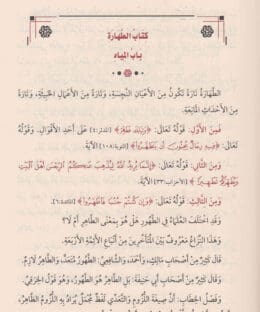 كتاب الطهارة
باب المياه
الطَّهَارَةُ تَارَةً تَكُونُ مِنَ الْأَعْيَانِ النَّجِسَةِ، وَتَارَةً مِنَ الْأَعْمَالِ الْخَبِيثَةِ، وَتَارَةً
مِنَ الْأَحْدَاثِ الْمَانِعَةِ.
فَمِنَ الْأَوَّلِ: قَوْلُهُ تَعَالَى: ﴿وَثِيَابَكَ فَطَهِّرْ﴾ [المدثر:٤] عَلَى أَحَدِ الْأَقْوَالِ. وَقَوْلُهُ
تَعَالَى: ﴿فِيهِ رِجَالٌ يُحِبُّونَ أَن يَتَطَهَّرُوا﴾ [التوبة:١٠٨] الآيَةَ.
وَمِنَ الثَّانِي: قَوْلُهُ تَعَالَى: ﴿إِنَّمَا يُرِيدُ اللَّهُ لِيُذْهِبَ عَنكُمُ الرِّجْسَ أَهْلَ الْبَيْتِ
وَيُطَهِّرَكُمْ تَطْهِيرًا﴾ [الأحزاب:٣٣] الآيَةَ.
وَمِنَ الثَّالِثِ: قَوْلُهُ تَعَالَى: ﴿وَإِن كُنتُمْ جُنُبًا فَاطَّهَّرُوا﴾ [المائدة:٦].
وَقَدِ اخْتَلَفَ الْعُلَمَاءُ فِي الطَّهُورِ هَلْ هُوَ بِمَعْنَى الطَّاهِرِ أَمْ لَا؟
وَهَذَا النِّزَاعُ مَعْرُوفٌ بَيْنَ الْمُتَأَخِّرِينَ مِنْ أَتْبَاعِ الْأَئِمَّةِ الْأَرْبَعَةِ.
قَالَ كَثِيرٌ مِنْ أَصْحَابِ مَالِكٍ، وَأَحْمَدَ، وَالشَّافِعِيِّ: الطَّهُورُ مُتَعَدٍّ، وَالطَّاهِرُ لَازِمٌ.
وَقَالَ كَثِيرٌ مِنْ أَصْحَابِ أَبِي حَنِيفَةَ: بَلِ الطَّاهِرُ هُوَ الطَّهُورُ، وَهُوَ قَوْلُ الْخِرَقِيِّ.
وَفَصْلُ الْخِطَابِ: أَنَّ صِيغَةَ اللُّزُومِ وَالتَّعَدِّي لَفْظٌ مُجْمَلٌ يُرَادُ بِهِ اللُّزُومُ الظَّاهِرُ،